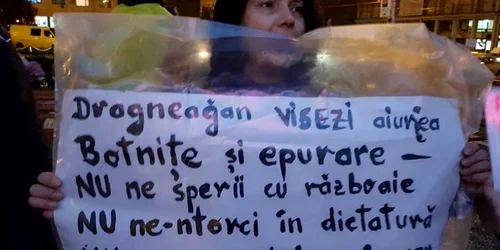 Dragneağan VISEZI aiurea
Botnițe și epurare —
NU ne sperii cu războaie
NU ne-ntorci în dictatură